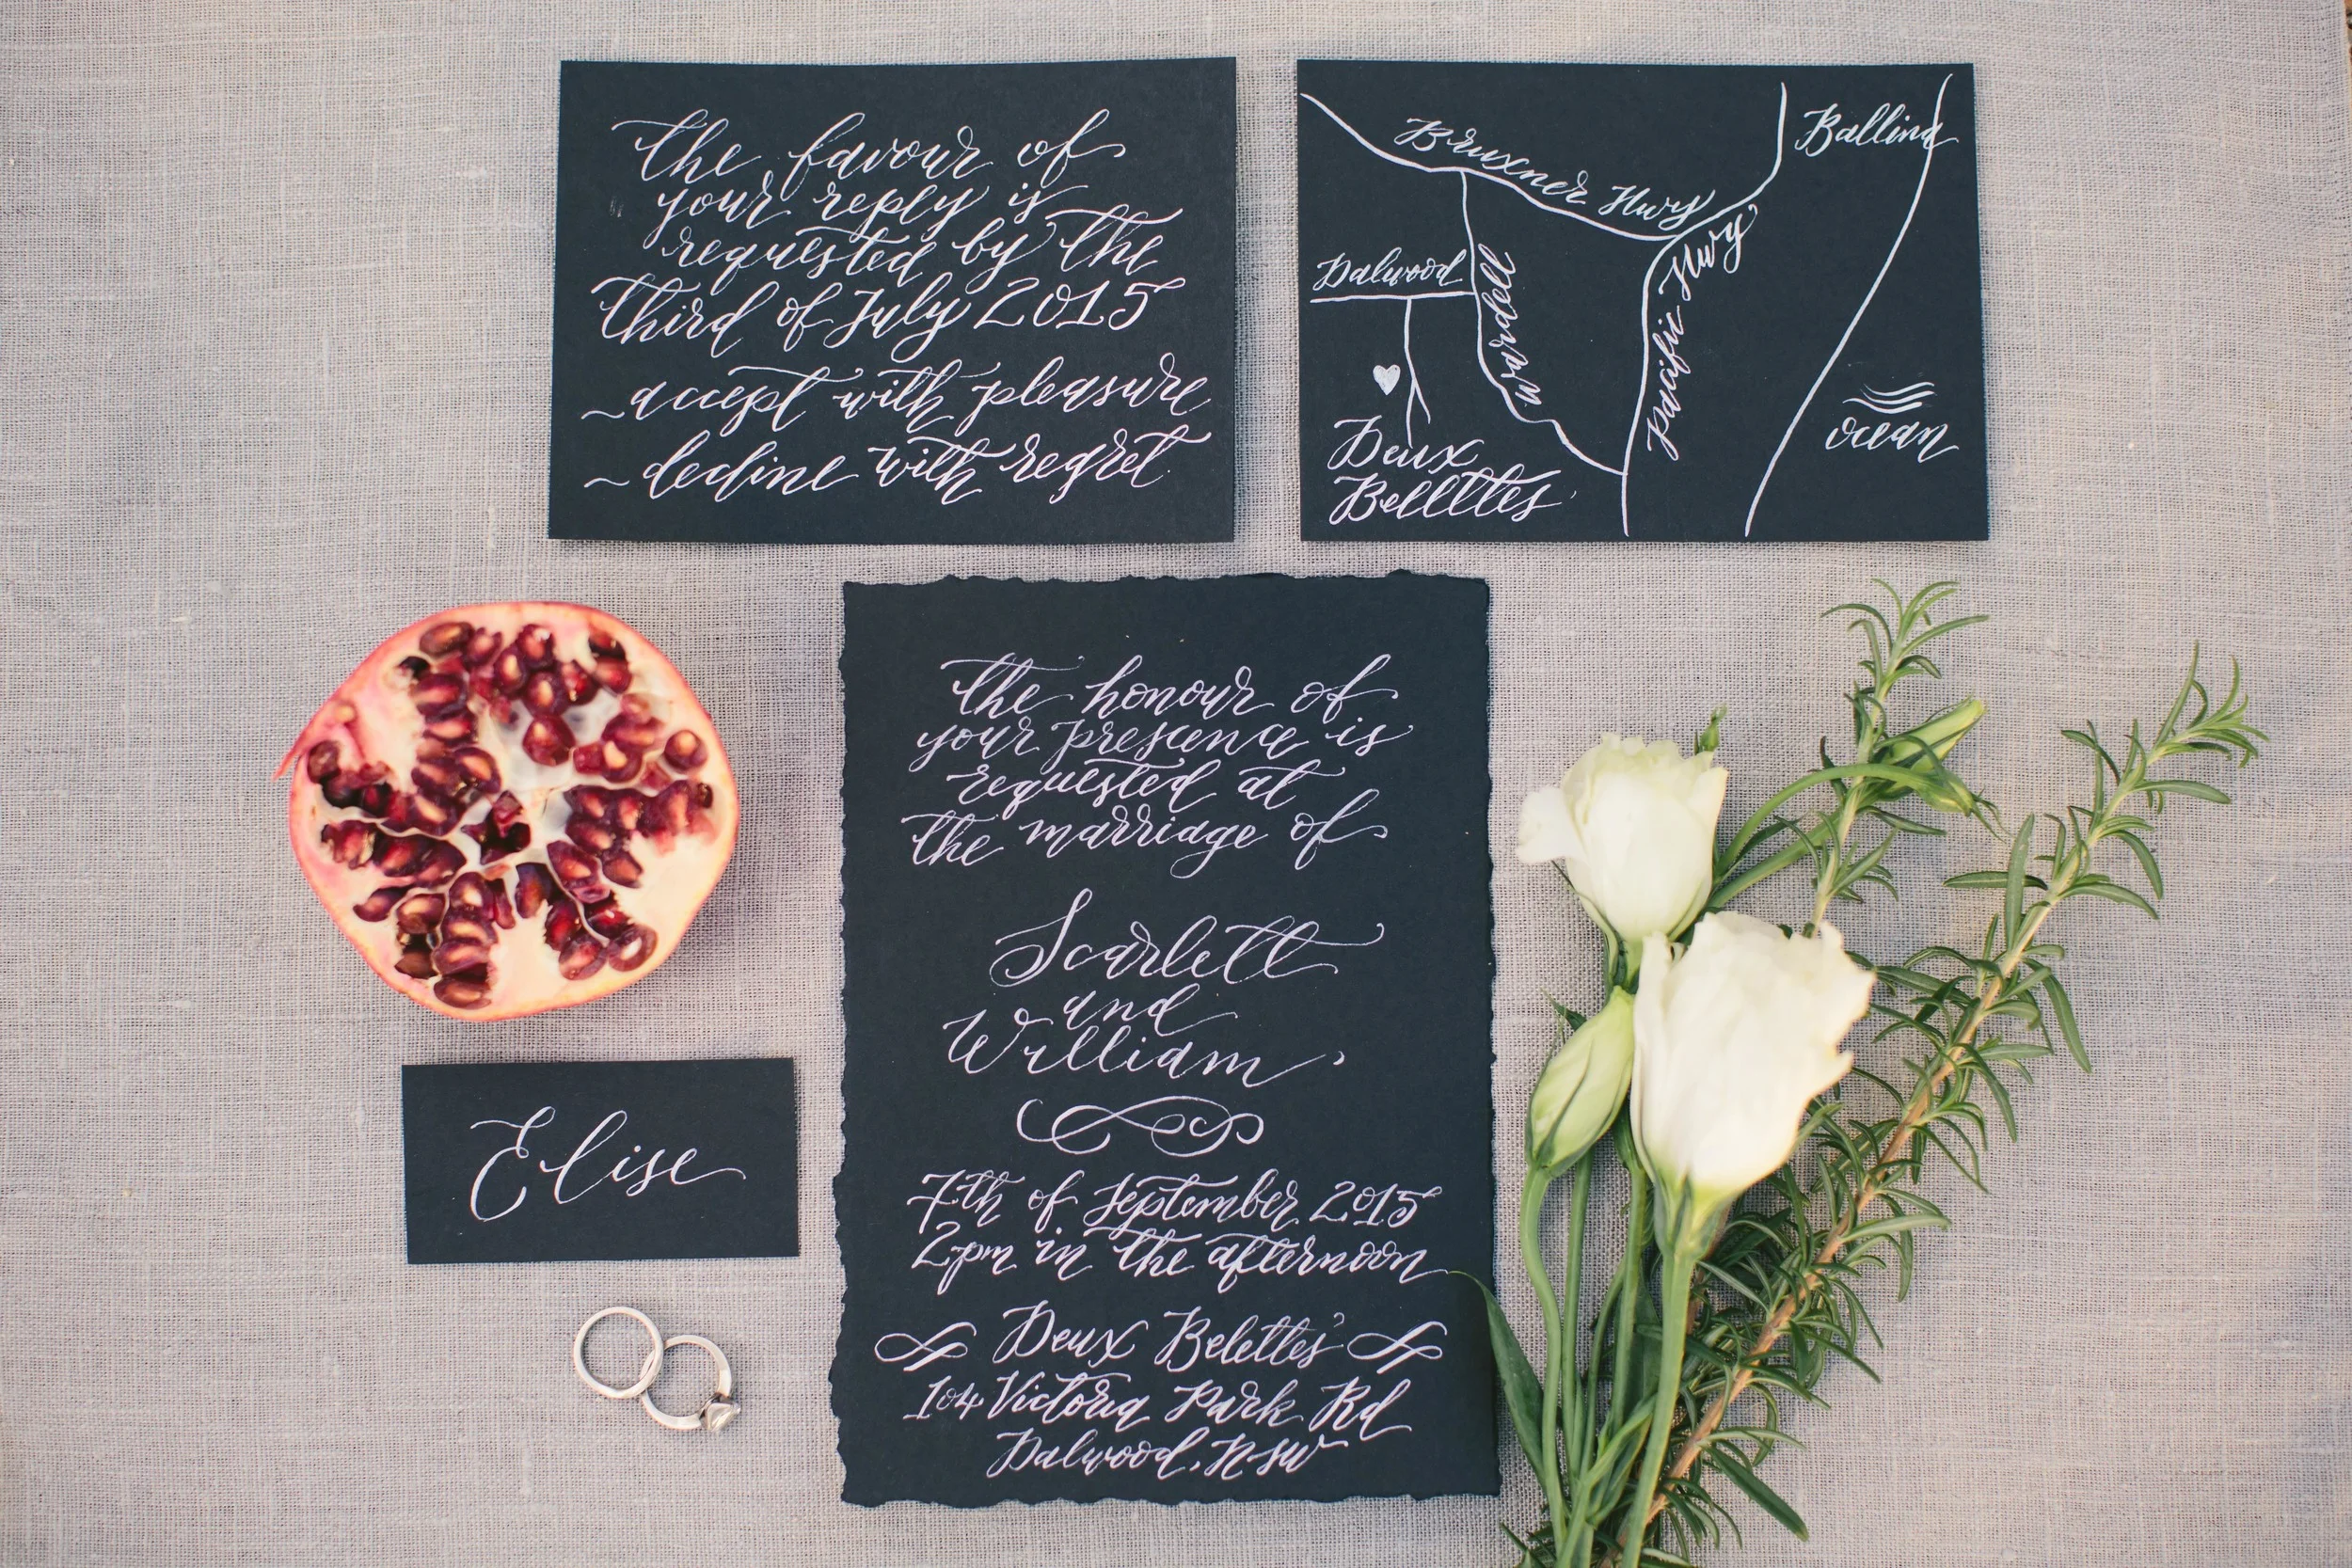 the favour of
your reply is
requested by the
third of July 2015
~accept with pleasure
~decline with regret
Bruxner Hwy
Ballina
Dalwood
Wardell
Pacific Hwy
Deux
Bellettes
ocean
the honour of
your presence is
requested at
the marriage of
Scarlett
and
William
7th of September 2015
2pm in the afternoon
Deux Belettes
104 Victoria Park Rd
Dalwood, NSW
Elise